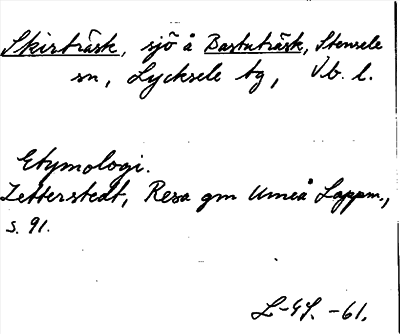 Skirträsk, sjö å Bastuträsk, Stensele
sn, Lycksele tg, Vb. l.
Etymologi.
Zetterstedt, Resa gm Umeå Lappm.,
s. 91.
L-GS. -61.